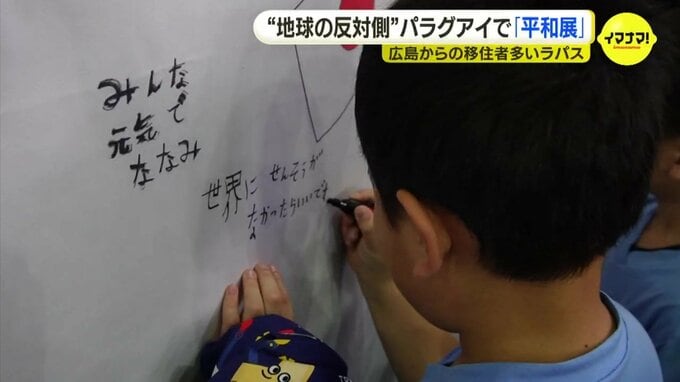 “地球の反対側”パラグアイで「平和展」
広島からの移住者多いラパス
イマナマ!
みんな
で
元気
ななみ
世界に せんそうが
なかったらいいです